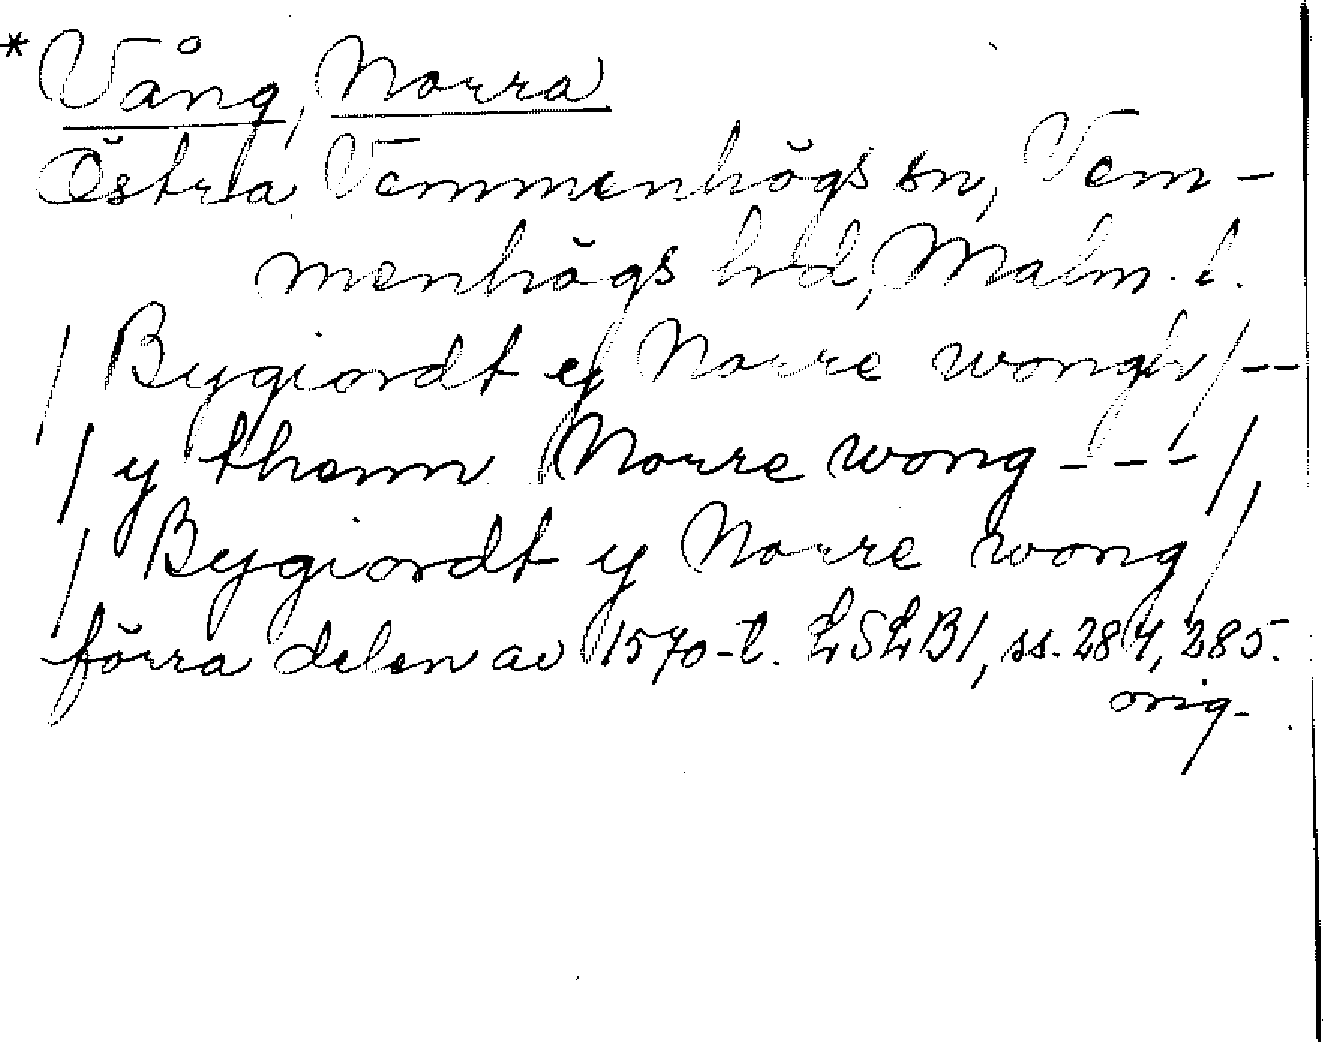 * Vång, Norra
Östra Vemmenhögs sn, Vem-
menhögs hd, Malm. l.
/ Bygiordt y Norre wongh / --
/ y thenn Norre wong - - - /
/ Bygiordt y Norre wong /
förra delen av 1570-t. LSLB1, ss. 284, 285.
orig.